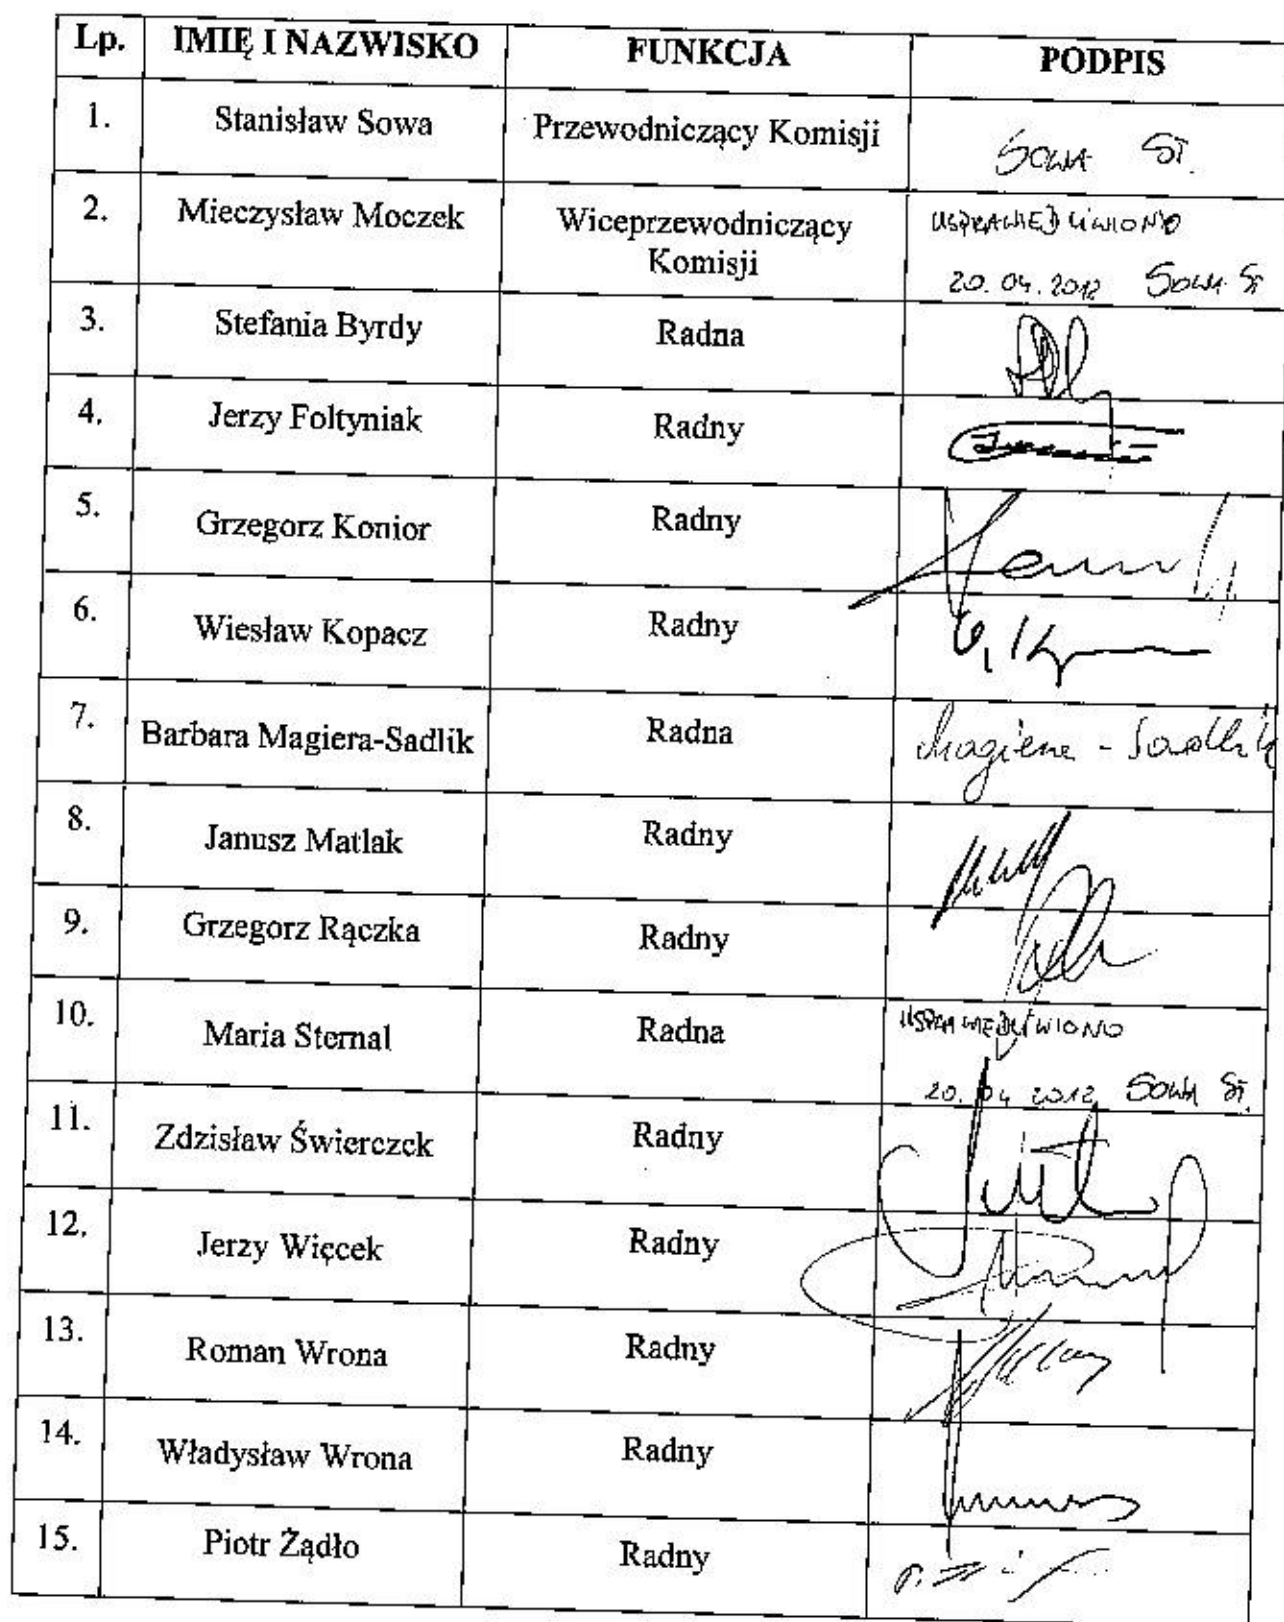 Lp. IMIĘ I NAZWISKO FUNKCJA PODPIS
1. Stanisław Sowa Przewodniczący Komisji SOWA ST.
2. Mieczysław Moczek Wiceprzewodniczący USPRAWIEDLIWIONO
Komisji 20.04.2012 SOWA ST
3. Stefania Byrdy Radna
4. Jerzy Foltyniak Radny
5. Grzegorz Konior Radny
6. Wiesław Kopacz Radny
7. Barbara Magiera-Sadlik Radna Magiera - Sadlik
8. Janusz Matlak Radny
9. Grzegorz Rączka Radny
10. Maria Sternal Radna USPRAWIEDLIWIONO
20.04 2012 SOWA ST.
11. Zdzisław Świerczek Radny
12. Jerzy Więcek Radny
13. Roman Wrona Radny
14. Władysław Wrona Radny
15. Piotr Żądło Radny